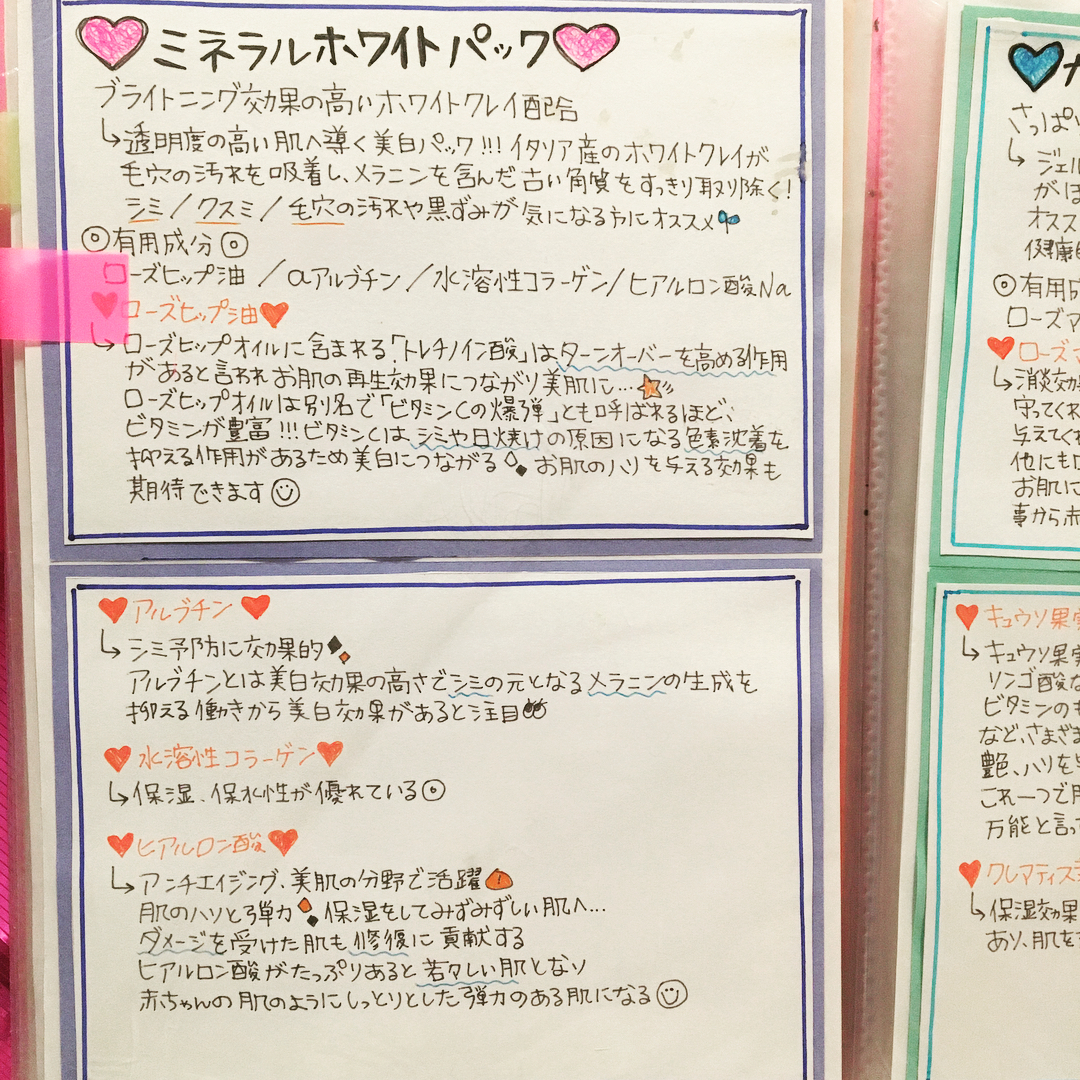 ミネラルホワイトパック
ブライトニング効果の高いホワイトクレイ配合
↳透明度の高い肌へ導く美白パック!!!イタリア産のホワイトクレイが
毛穴の汚れを吸着し、メラニンを含んだ古い角質をすっきり取り除く!
シミ/クスミ/毛穴の汚れや黒ずみが気になる方にオススメ
◎有用成分◎
ローズヒップ油/αアルブチン/水溶性コラーゲン/ヒアルロン酸Na
ローズヒップ油
↳ローズヒップオイルに含まれる「トレチノイン酸」はターンオーバーを高める作用
があると言われお肌の再生効果につながり美肌に…
ローズヒップオイルは別名で「ビタミンCの爆弾」とも呼ばれるほど、
ビタミンが豊富!!!ビタミンCはシミや日焼けの原因になる色素沈着を
抑える作用があるため美白につながる お肌のハリを与える効果も
期待できます
アルブチン
↳シミ予防に効果的
アルブチンとは美白効果の高さでシミの元となるメラニンの生成を
抑える働きから美白効果があると注目
水溶性コラーゲン
↳保湿、保水性が優れている
ヒアルロン酸
↳アンチエイジング、美肌の分野で活躍
肌のハリと弾力 保湿をしてみずみずしい肌へ…
ダメージを受けた肌も修復に貢献する
ヒアルロン酸がたっぷりあると若々しい肌となり
赤ちゃんの肌のようにしっとりとした弾力のある肌になる
さっぱり
↳ジェル
がほ
オスス
健康的
◎有用成
ローズマ
ローズマ
↳消炎効果
守ってくれ
与えてくれ
他にも
お肌に
事から赤
キュウソ果実
↳キュウソ果実
リンゴ酸な
ビタミンのも
など、さまざま
艶、ハリを与
これ一つで肌
万能と言って
クレマティス
↳保湿効果
あり、肌をす